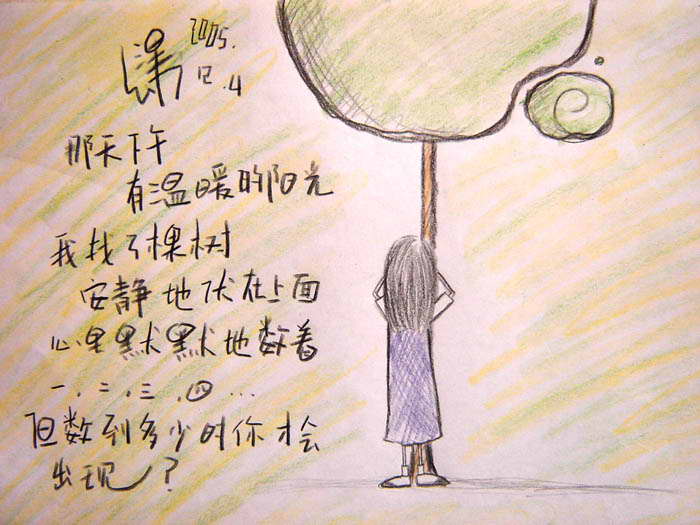 2005.
12.4
那天下午
有温暖的阳光
我找了棵树
安静地伏在上面
心里默默地数着
一.二.三.四...
但数到多少时你才会
出现?